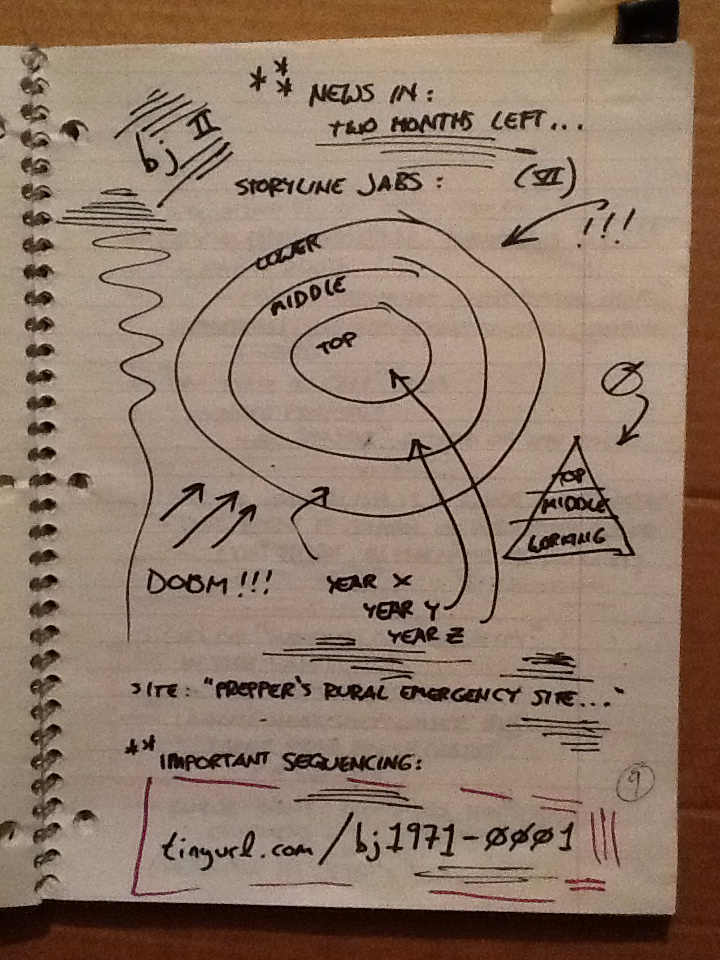 ** NEWS IN:
* TWO MONTHS LEFT...
bj II
STORYLINE JABS: (VI)
!!!
LOWER
MIDDLE
TOP
Ø
TOP
MIDDLE
WORKING
DOOM!!!
YEAR X
YEAR Y
YEAR Z
SITE: "PREPPER'S RURAL EMERGENCY SITE..."
** IMPORTANT SEQUENCING:
9
tinyurl.com/bj1971-ØØØ1